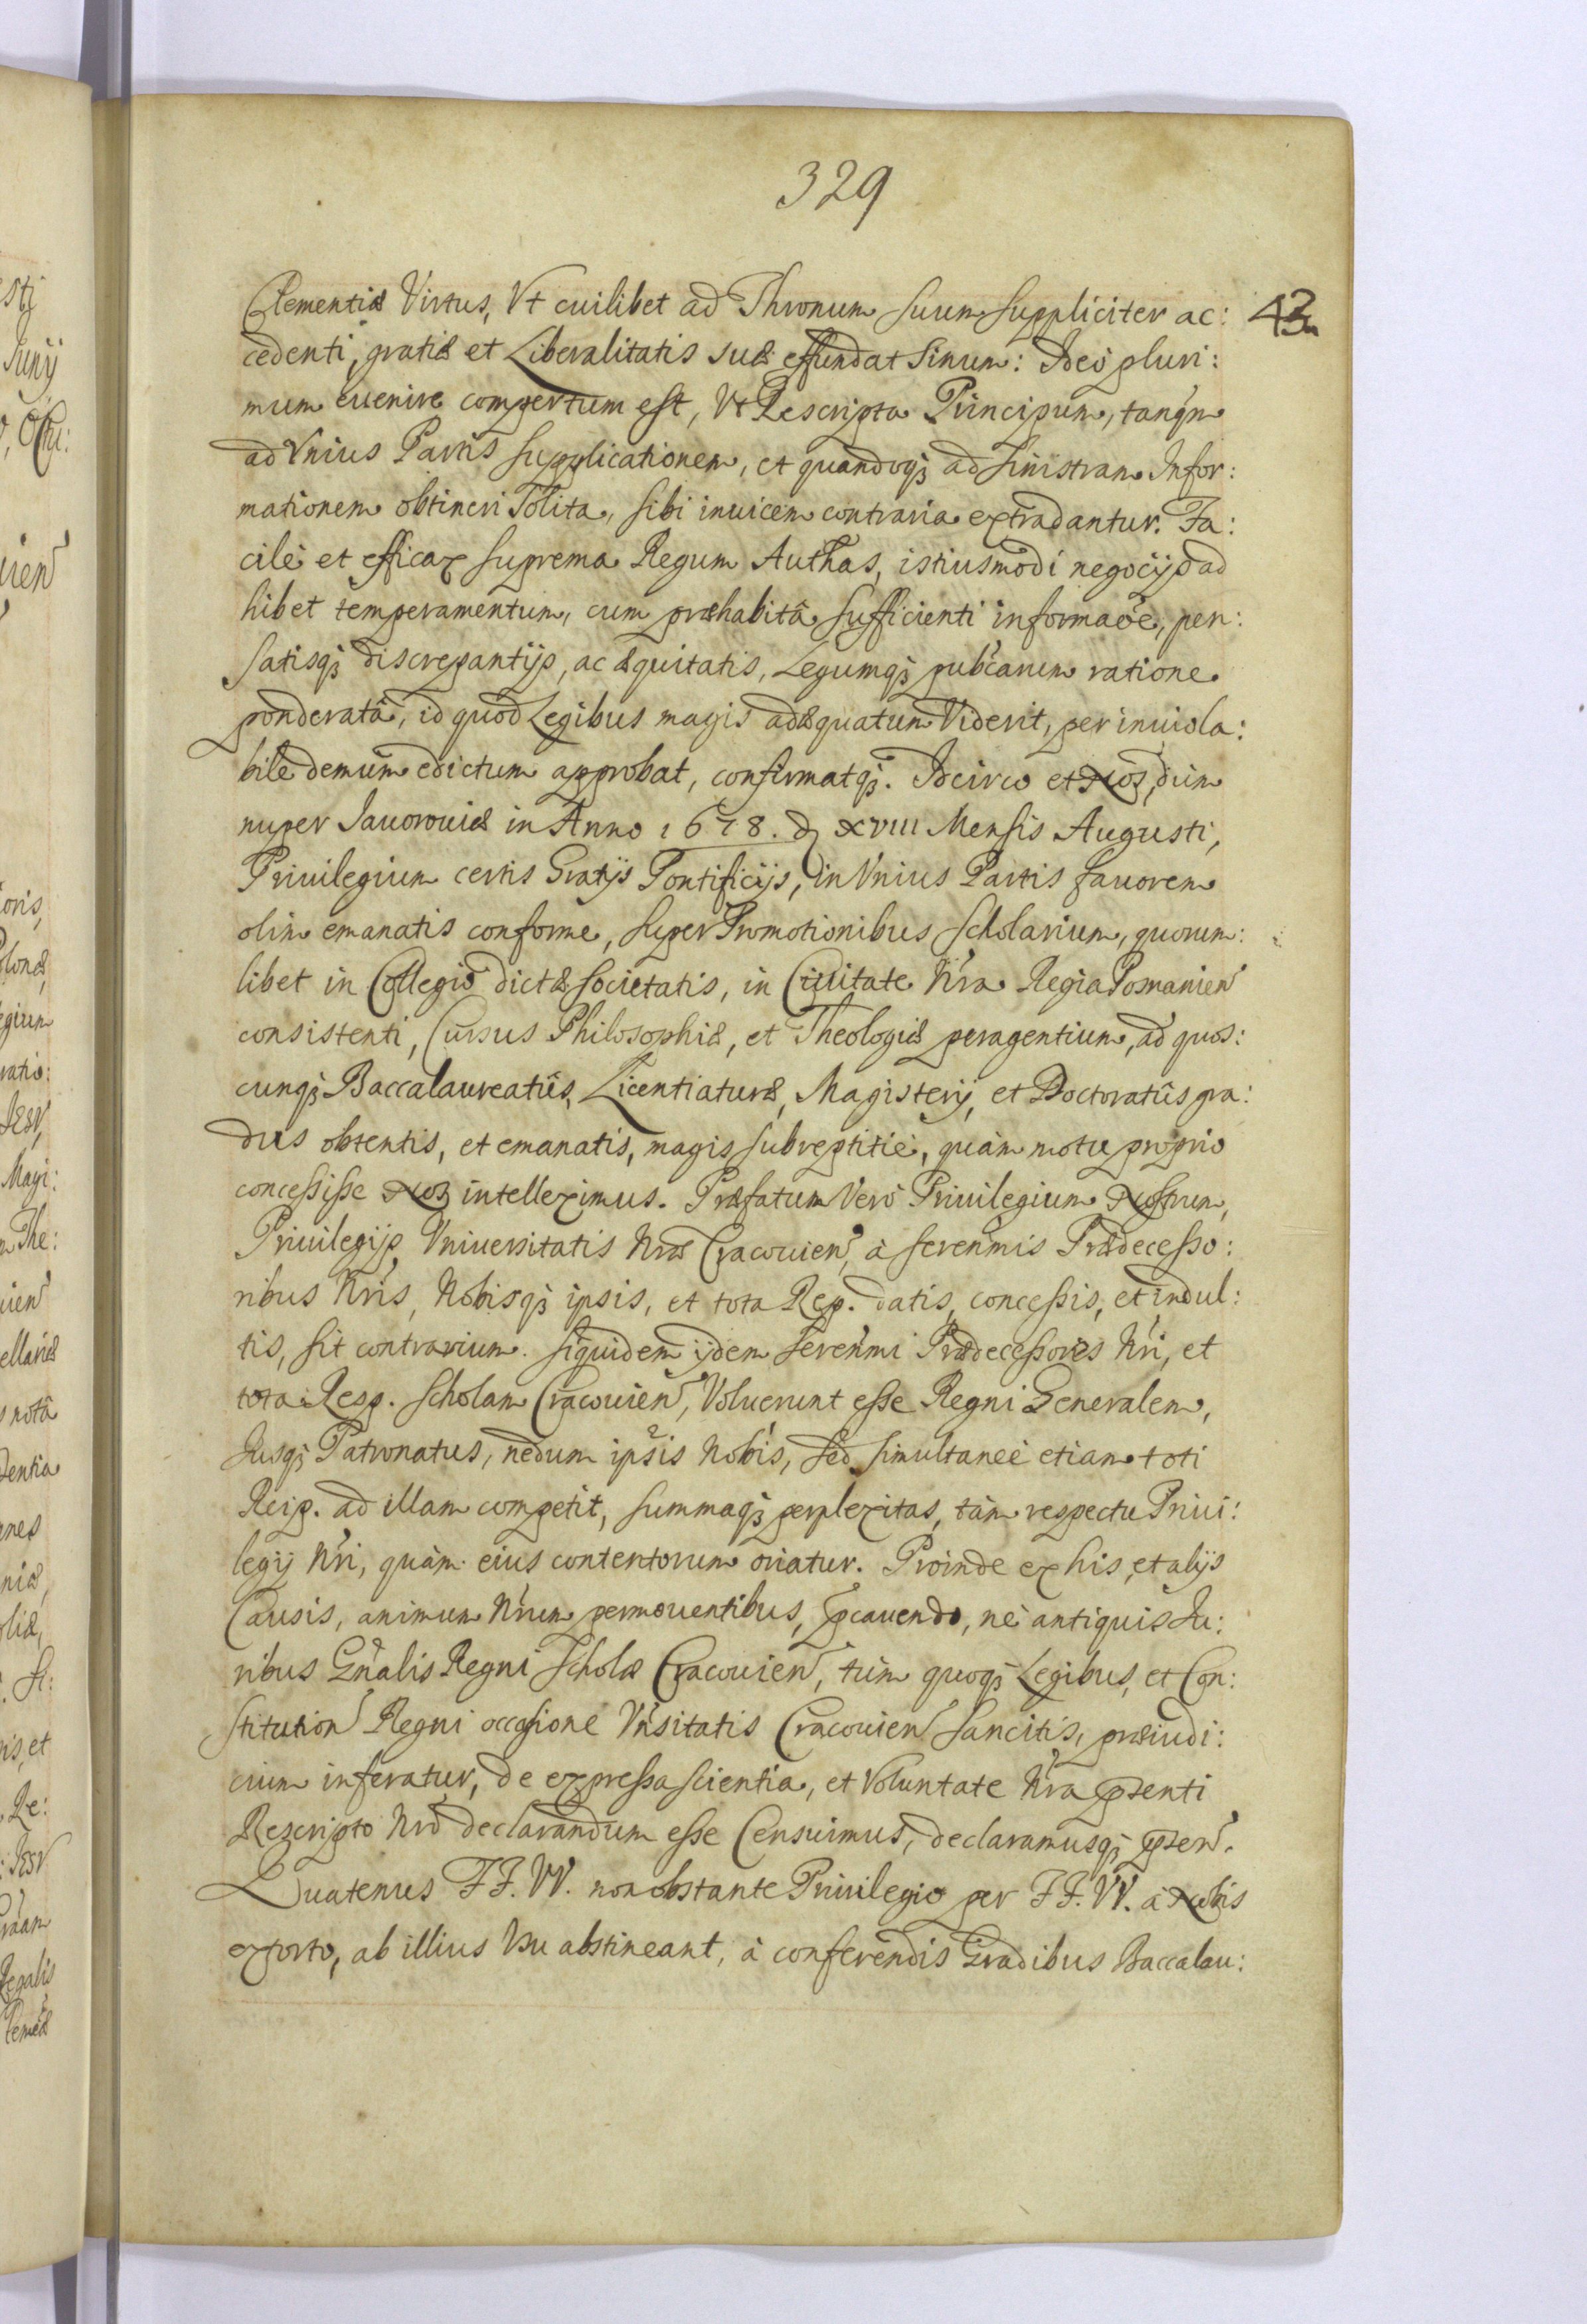 329
Clementiæ Virtus, Vt cuilibet ad Thronum suum suppliciter ac: 43
cedenti, gratiæ et Liberalitatis suæ effundat Sinum: Ideò pluri:
mum euenire compertum est, Vt Rescripta Principum, tanq́m
ad Vnius Partis supplicationem, et quandoq; ad sinistram Infor:
mationem obtineri Solita, sibi inuicem contraria extradantur. Fa:
cilè et efficax suprema Regum Autħas, istiusmodi negocijs ad
hibet temperamentum, cum præhabitâ sufficienti informaõe, pen:
satisq; discrepantijs, ac æquitatis, Legumq; pubcarum ratione
ponderatâ, id quod Legibus magis adæquatum Viderit, per inuiola:
bile demùm edictum approbat, confirmatq;. Idcirco et Nos, dum
nuper Jauorouiæ in Anno 1678. d XVIII Mensis Augusti,
Priuilegium certis Gratijs Pontificijs, in Vnius Partis fauorem
olim emanatis conforme, super Promotionibus Scholarium, quorum:
libet in Collegio dictæ societatis, in Ciuitate Nrã Regia Posnanien̄
consistenti, Cursus Philosophiæ, et Theologiæ peragentium, ad quos:
cunq; Baccalaureatûs, Licentiaturæ, Magisterij, et Doctoratûs gra:
dus obtentis, et emanatis, magis subreptitiè, quàm motu proprio
concessisse Nos intelleximus. Præfatum Verò Priuilegium Nostrum,
Priuilegijs Vniuersitatis Nræ Cracouien̄, à seren̄mis Prædecesso:
ribus Nris, Nobisq; ipsis, et tota Rep. datis, concessis, et indul:
tis, sit contrarium. siquidem ijdem seren̄mi Prædecessores Nri, et
tota Resp. scholam Cracouien̄, Voluerunt esse Regni Generalem,
Jusq; Patronatus, nedum ipsis Nobis, sed simultaneè etiam toti
Reip. ad illam competit, summaq; perplexitas, tàm respectu Priui:
legij Nri, quàm eius contentorum oriatur. Proinde ex his, et alijs
Causis, animum Nrum permouentibus, p̱cauendo, nè antiquis Ju:
ribus Gn̄alis Regni Scholæ Cracouien̄, tùm quoq; Legibus, et Con:
stitution̄ Regni occasione Vn̄sitatis Cracouien̄ sancitis, præiudi:
cium inferatur, de expressa scientia, et Voluntate Nrã p̱senti
Rescripto Nrõ declarandum esse Censuimus, declaramusq; p̱sen̄.
Quatenus FF. VV. non obstante Priuilegio per FF. VV. à Nobis
extorto, ab illius Vsu abstineant, à conferendis Gradibus Baccalau: